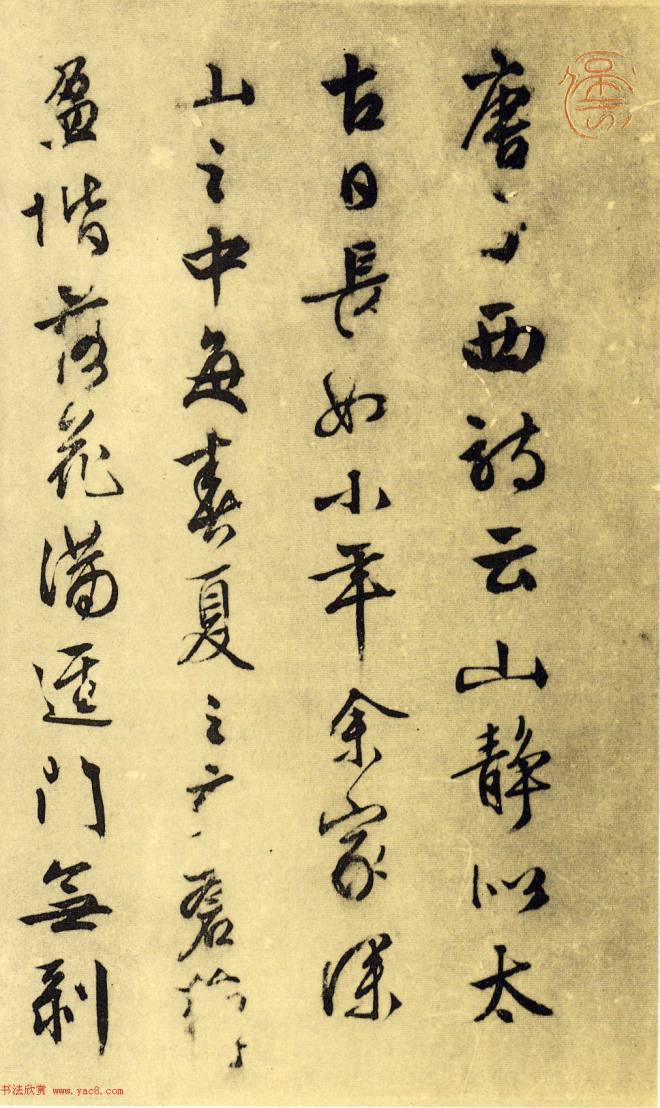 唐西詩云山靜似太
古日長如小年余家深
山之中每春夏之交蒼
盈堦落花滿逕門無剝
书法欣赏 www.yac8.com